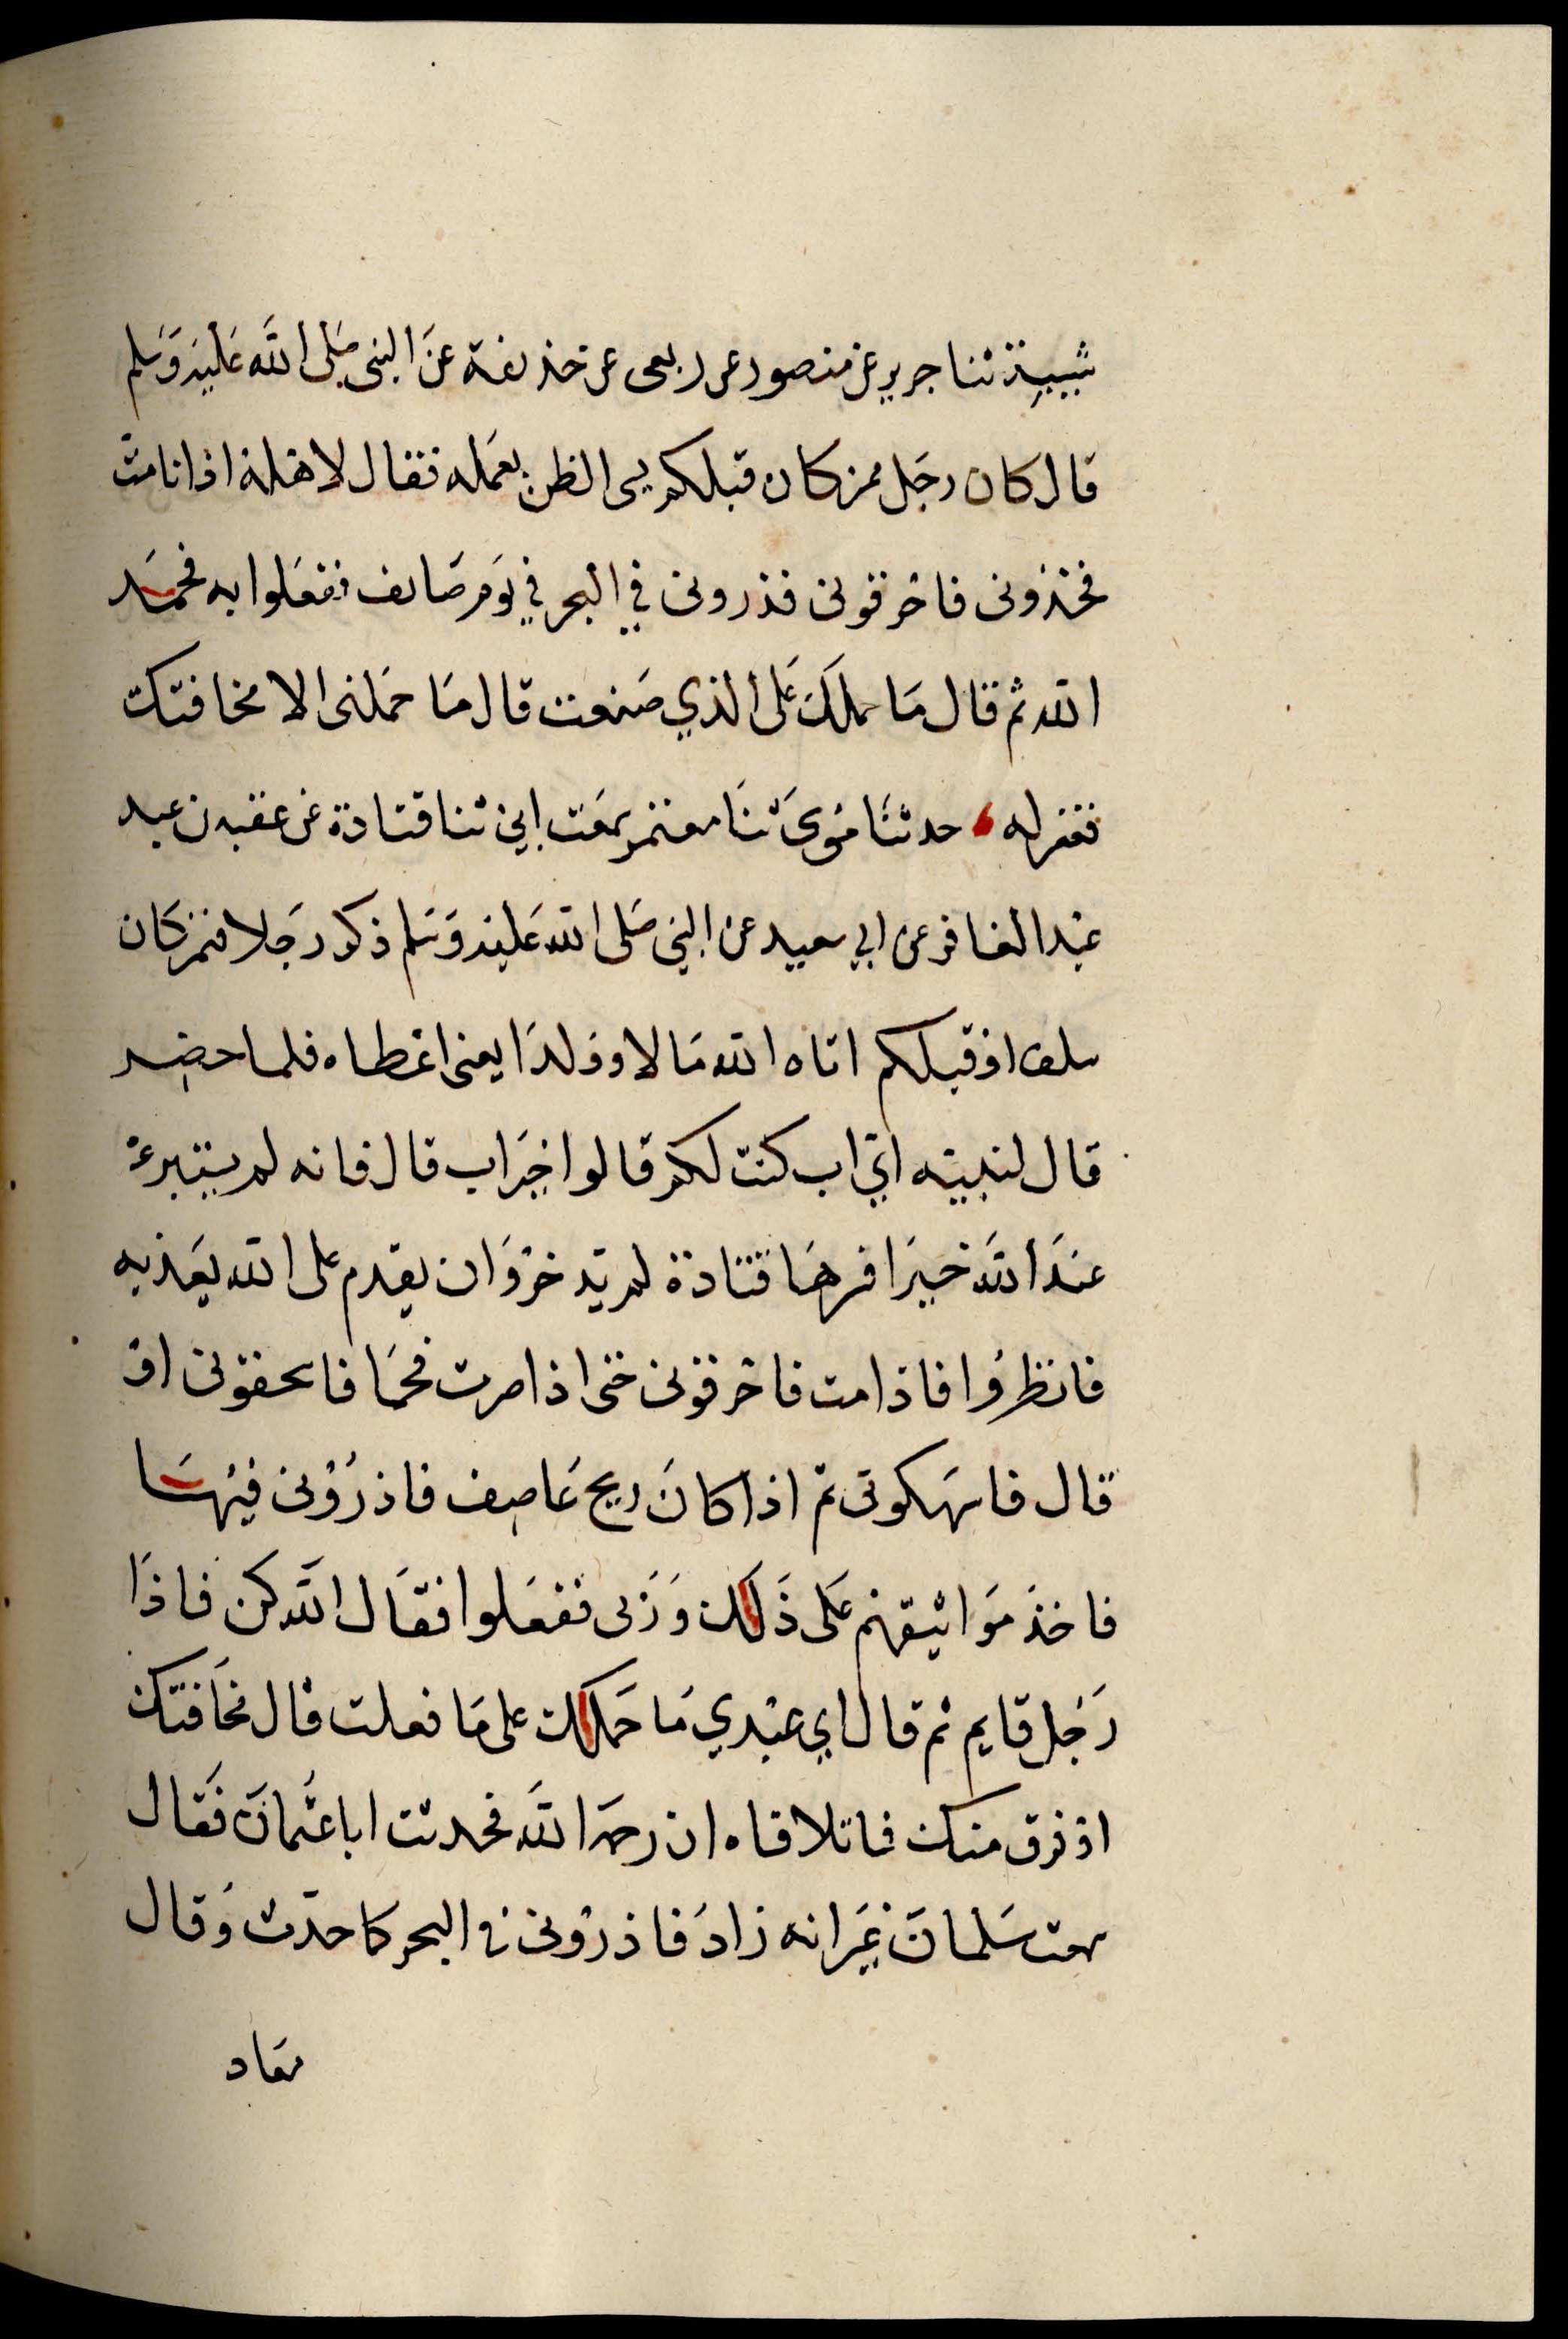 شيبة ثنا جرير عن منصور عن ربعى عن حذيفة عن النبى صلى الله عليه وسلم
قال كان رجل ممن كان قبلكم يسى الظن بعمله فقال لاهله اذا انا مت
فخذونى فاحرقونى فذرونى في البحر في يوم صايف ففعلوا به فجمعه
الله ثم قال ما حملك على الذي صنعت قال ما حملنى الا مخافتك
فغفر له حدثنا موسى ثنا معتمر سمعت ابي ثنا قتادة عن عقبه بن عبد
عبد الغافر عن ابي سعيد عن النبي صلى الله عليه وسلم ذكر رجلا فمن كان
سلف او قبلكم اتاه الله مالا وولدا يعنى اعطاه فلما حضر
قال لبنيه اي اب كنت لكم قالوا خير اب قال فانه لم يبتئر
عند الله خيرا فسرها قتادة لم يدخر وان يقدم على الله يعذبه
فانظروا فاذا مت فاحرقونى حتى اذا صرت فحما فاسحقونى او
قال فاسهكونى ثم اذا كان ريح عاصف فاذرونى فيها
فاخذ مواثيقهم على ذلك وربى ففعلوا فقال الله كن فاذا
رجل قايم ثم قال اي عبدي ما حملك على ما فعلت قال مخافتك
او فرق منك فما تلافاه ان رحمه الله فحدثت ابا عثمان فقال
سمعت سلمان غير انه زاد فاذرونى في البحر كما حدث وقال
معاد